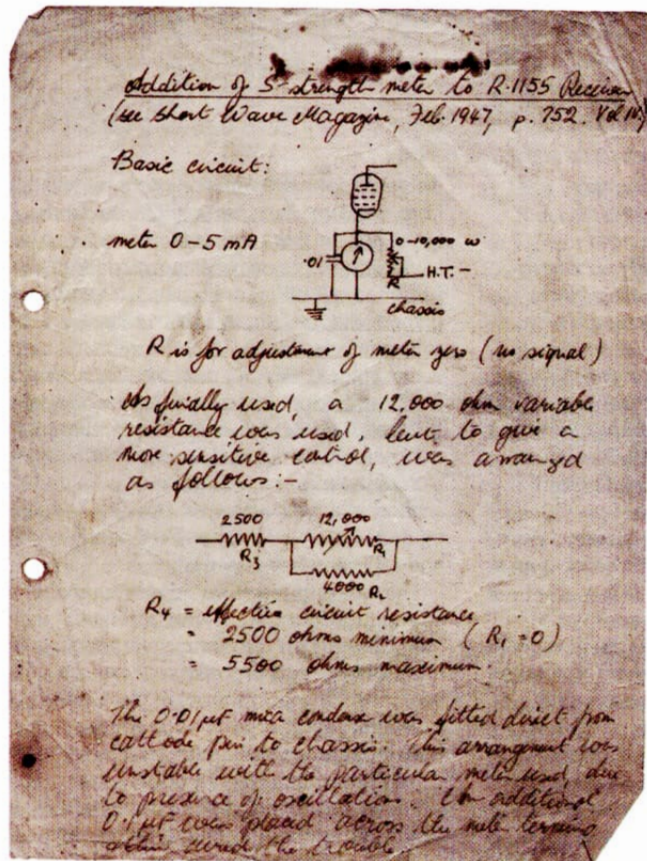 Addition of S-strength meter to R.1155 Receiver
(see Short Wave Magazine, Feb. 1947, p. 752. Vol IV.)
Basic circuit:
meter 0-5 mA
.01
0-10,000 ω
R
H.T. -
chassis
R is for adjustment of meter zero (no signal)
As finally used, a 12,000 ohm variable
resistance was used, but to give a
more sensitive control, was arranged
as follows:-
2500
12,000
R3
R1
4000
R2
R4 = effective circuit resistance
= 2500 ohms minimum (R1 = 0)
= 5500 ohms maximum.
The 0.01 μF mica condenser was fitted direct from
cathode pin to chassis. This arrangement was
unstable with the particular meter used, due
to presence of oscillations. An additional
0.1 μF was placed across the meter
cured the trouble.